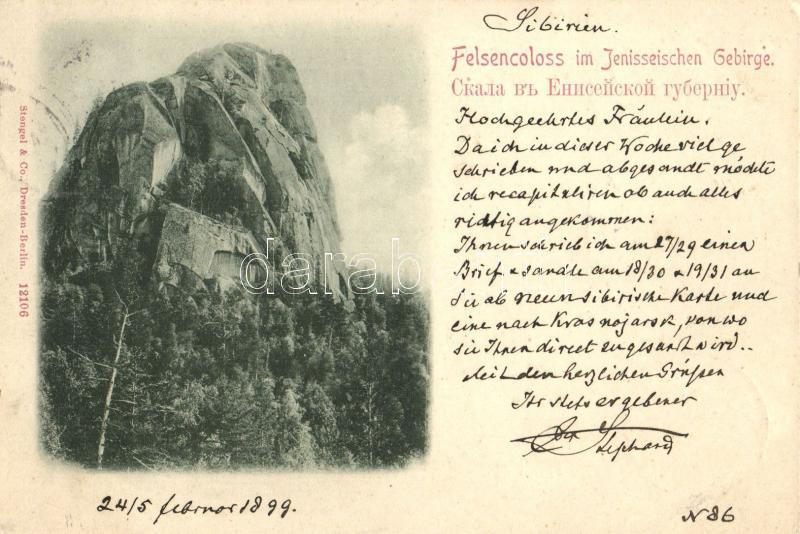 Sibirien.
Felsencoloss im Jenisseischen Gebirge.
Скала въ Енисейской губернiу.
Hochgeehrtes Fräulein.
Da ich in dieser Woche viel ge
schrieben und abgesandt möchte
ich recapituliren ob auch alles
richtig angekommen:
Ihnen schrieb ich am 17/29 einen
Brief & sandte am 18/30 & 19/31 an
Sie ab neun sibirische Karte und
eine nach Krasnojarsk, von wo
sie Ihnen direct zugesandt wird..
Mit den herzlichen Grüßen
Ihr stets ergebener
Stephard
Stengel & Co., Dresden-Berlin. 12106
darabanth
24/5 februar 1899.
N 86